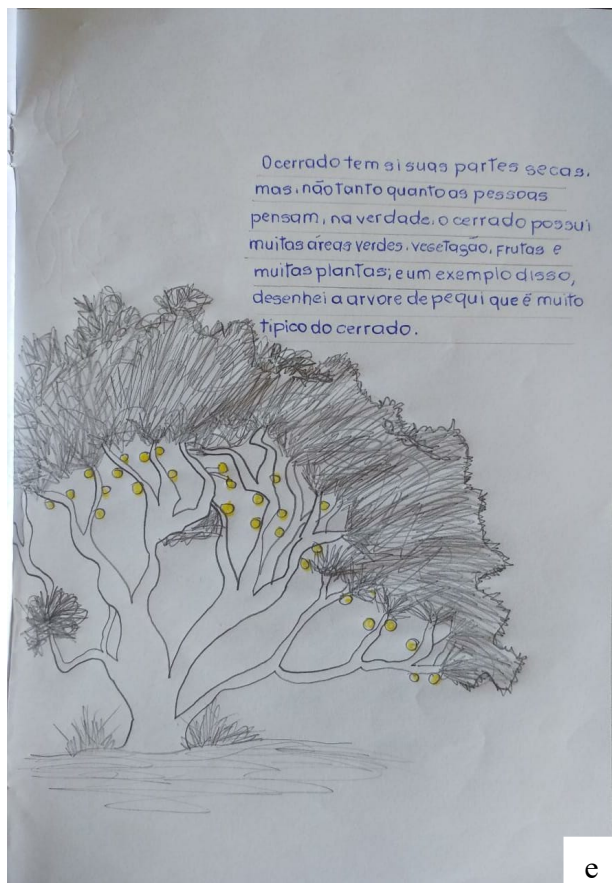 O cerrado tem si suas partes secas,
mas, não tanto quanto as pessoas
pensam, na verdade, o cerrado possui
muitas áreas verdes, vegetação, frutas e
muitas plantas; e um exemplo disso,
desenhei a arvore de pequi que é muito
típico do cerrado.
e